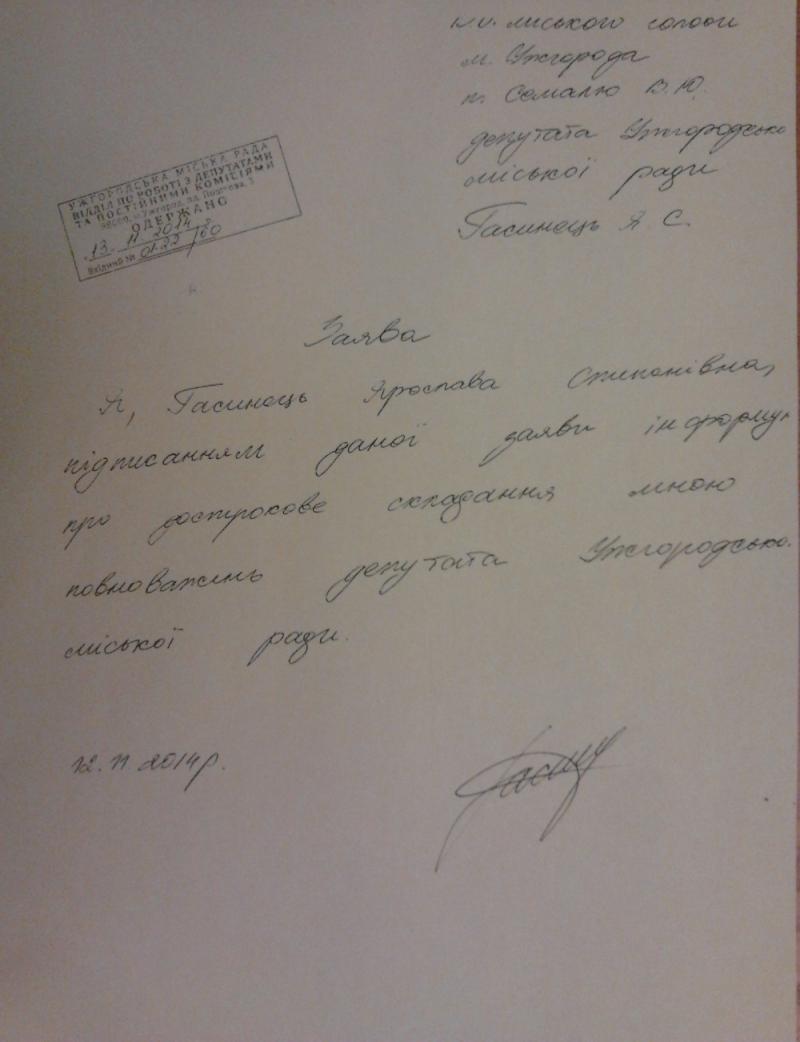 міського голови
м. Ужгорода
п. Семалю В.Ю.
депутата Ужгородсько
міської ради
Гасинець Я. С.
УЖГОРОДСЬКА МІСЬКА РАДА
ВІДДІЛ ПО РОБОТІ З ДЕПУТАТАМИ
ТА ПОСТІЙНИМИ КОМІСІЯМИ
88000, м. Ужгород, пл. Поштова, 3
ОДЕРЖАНО
13. 11 2014 р.
Вхідний № 01.22/60
Заява
Я, Гасинець Ярослава Степанівна,
підписанням даної заяви інформу
про дострокове складання мною
повноважень депутата Ужгородсько
міської ради.
12. 11 2014р.